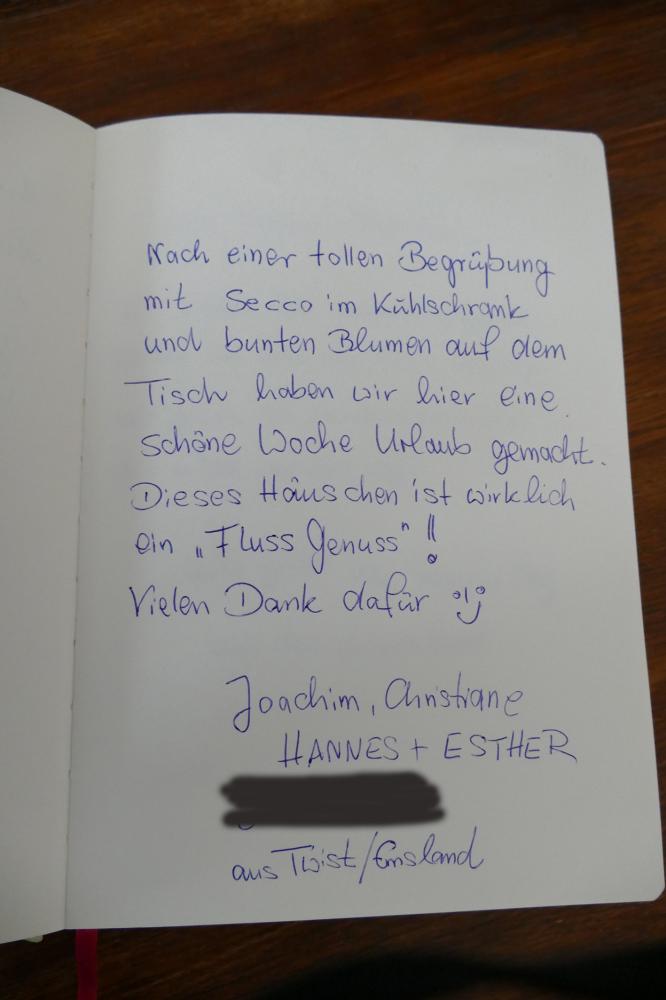 Nach einer tollen Begrüßung
mit Secco im Kühlschrank
und bunten Blumen auf dem
Tisch haben wir hier eine
schöne Woche Urlaub gemacht.
Dieses Häuschen ist wirklich
ein „Fluss Genuss" !!
Vielen Dank dafür :)
Joachim, Christiane
HANNES + ESTHER
aus Twist/Emsland